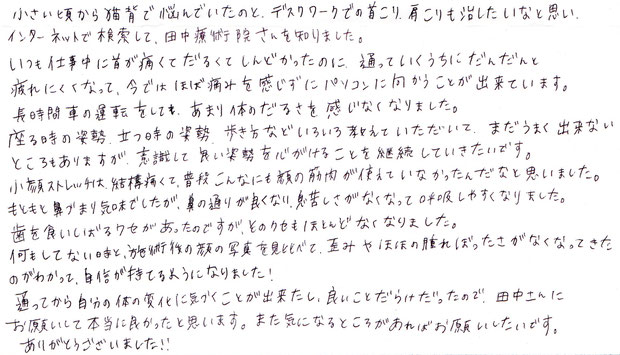 小さい頃から猫背で悩んでいたのと、デスクワークでの首こり、肩こりも治したいなと思い、
インターネットで検索して、田中療術院さんを知りました。
いつも仕事中に首が痛くてだるくてしんどかったのに、通っていくうちにだんだんと
疲れにくくなって、今ではほぼ痛みを感じずにパソコンに向かうことが出来ています。
長時間車の運転をしても、あまり体のだるさを感じなくなりました。
座る時の姿勢、立つ時の姿勢、歩き方などいろいろ教えていただいて、まだうまく出来ない
ところもありますが、意識して良い姿勢を心がけることを継続していきたいです。
小顔ストレッチは、結構痛くて、普段こんなにも顔の筋肉が使えていなかったんだなと思いました。
もともと鼻づまり気味でしたが、鼻の通りが良くなり、息苦しさがなくなって呼吸しやすくなりました。
歯を食いしばるクセがあったのですが、そのクセもほとんどなくなりました。
何もしてない時と、施術後の顔の写真を見比べて、歪みやほほの腫れぼったさがなくなってきた
のがわかって、自信が持てるようになりました!
通ってから自分の体の変化に気づくことが出来たし、良いことだらけだったので、田中さんに
お願いして本当に良かったと思います。また気になるところがあればお願いしたいです。
ありがとうございました!!